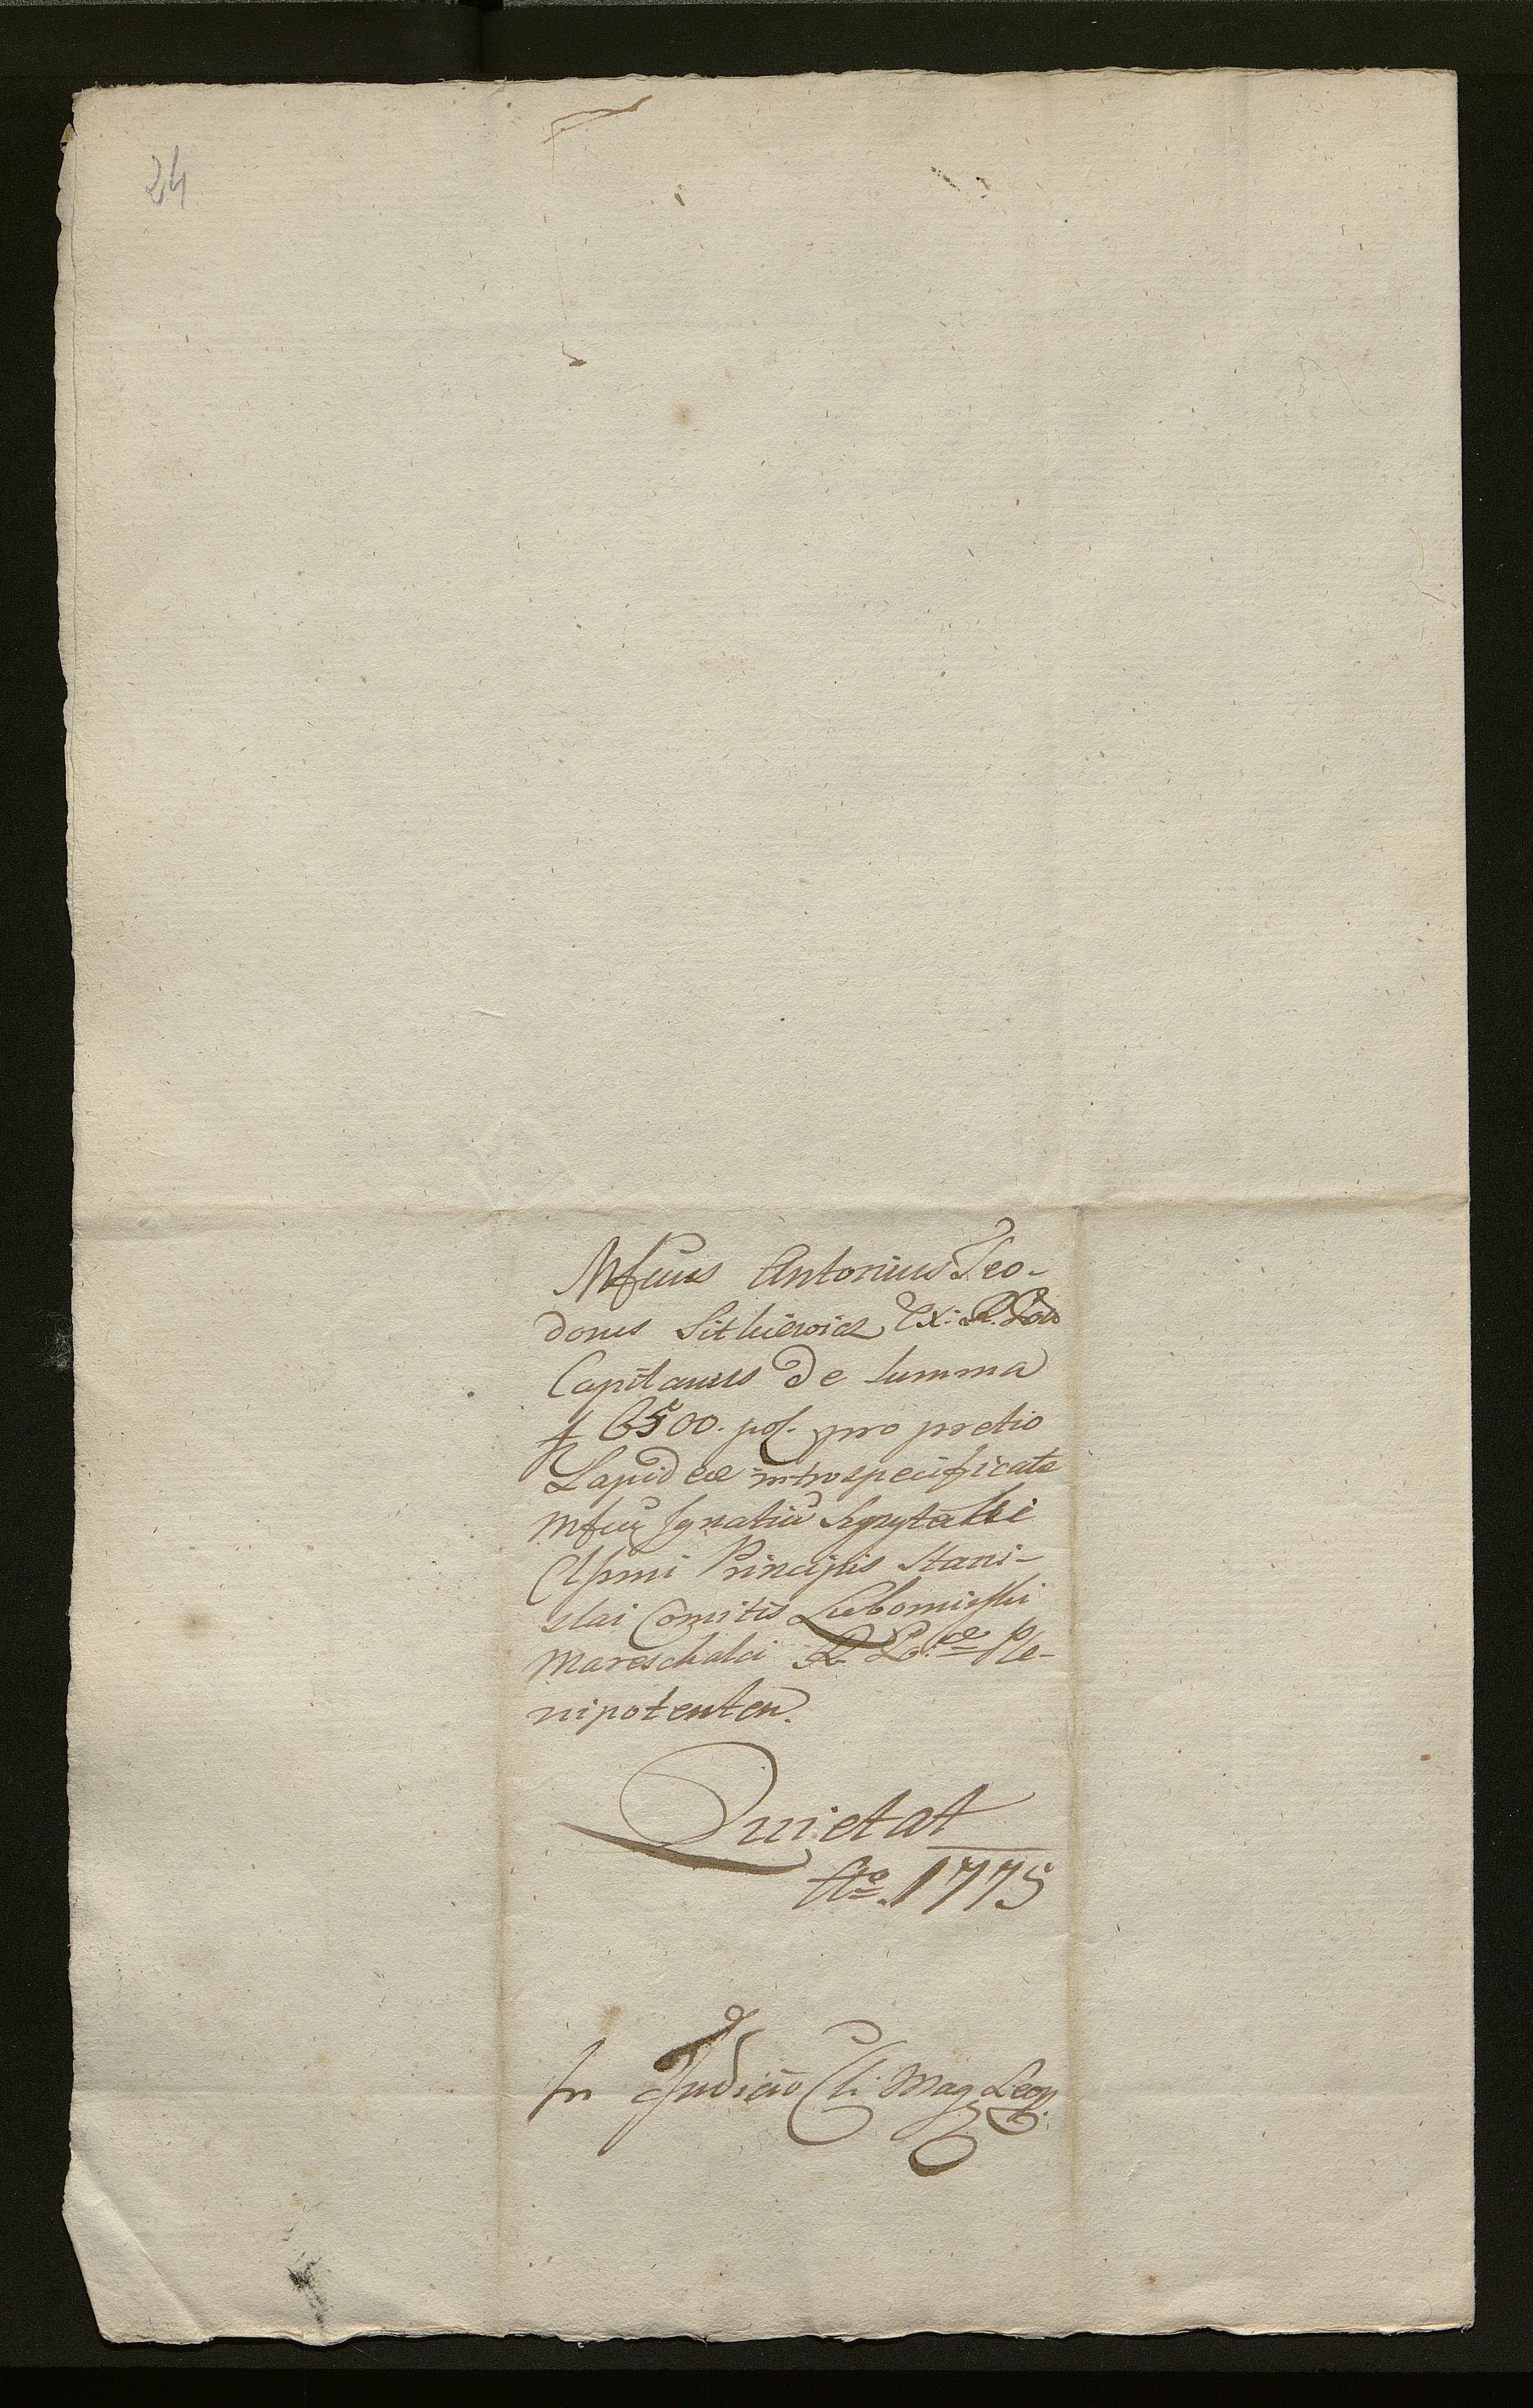 24
Mfcus Antonius Teo-
dorus Sitkiewicz Ex:
Capitaneus de Summa
f 6500. pol. pro pretio
Lapideæ introspecificatæ
Mfcū Ignatiū
Clssmi Principis Stani-
slai Comitis Lubomirski
Mareschalci R. P. Ple-
nipotentem.
Quietat
Ao. 1775
In Judicio Cli. Mag. Leop.